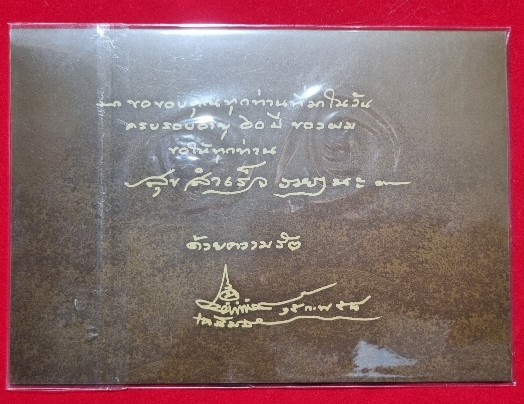 ขอขอบคุณทุกท่านที่มาในวัน
ครบรอบอายุ ๖๐ ปี ของผม
ขอให้ทุกท่าน
สุข สำเร็จ รวยๆ นะ
ด้วยความรัก
เฉลิมชัย